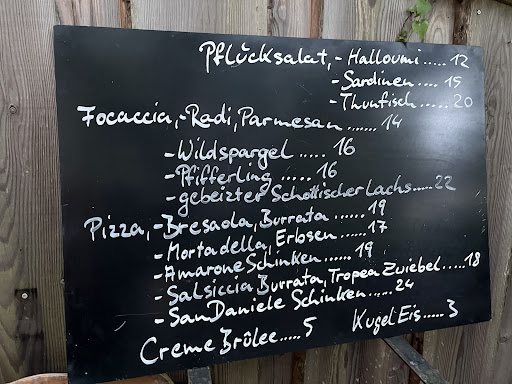 Pflücksalat,- Halloumi.....12
-Sardinen....15
-Thunfisch.....20
Focaccia,-Radi,Parmesan.......14
-Wildspargel.....16
-Pfifferling.....16
-gebeizter Schottischer Lachs.....22
Pizza,-Bresaola,Burrata......19
-Mortadella,Erbsen.....17
-Amarone Schinken......19
-Salsiccia,Burrata,Tropea Zwiebel.....18
-San Daniele Schinken.....24
Creme Brûlee.....5 Kugel Eis.....3